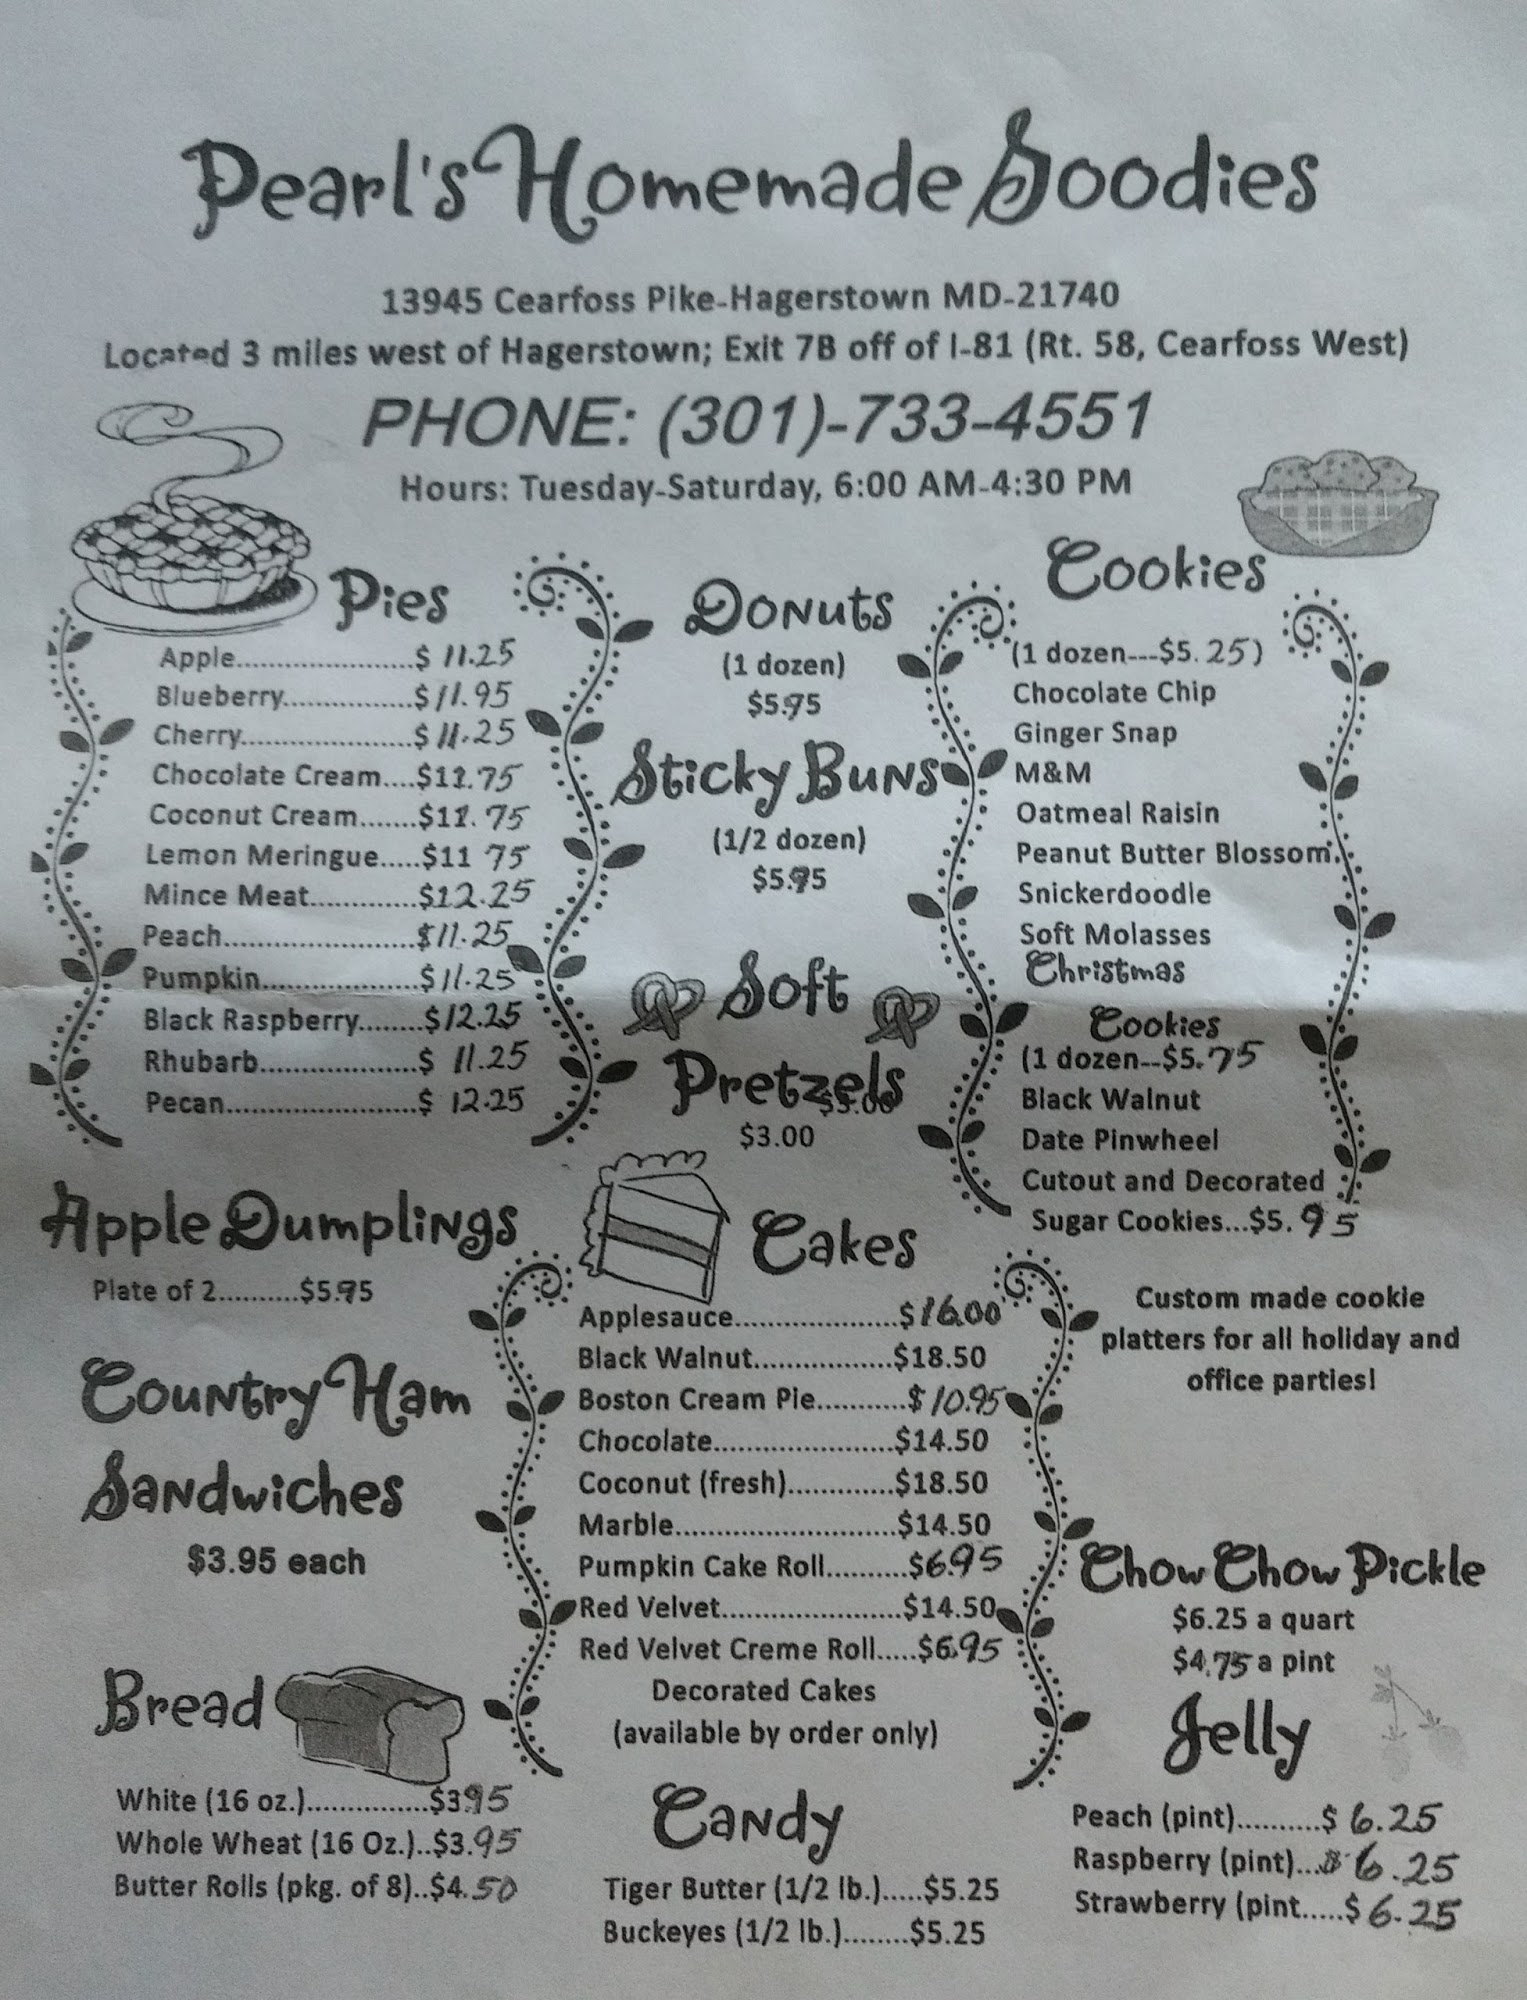 Pearl's Homemade Goodies
13945 Cearfoss Pike-Hagerstown MD-21740
Located 3 miles west of Hagerstown; Exit 7B off of I-81 (Rt. 58, Cearfoss West)
PHONE: (301)-733-4551
Hours: Tuesday-Saturday, 6:00 AM-4:30 PM
Pies
Apple......................$ 11.25
Blueberry................$11.95
Cherry.....................$ 11.25
Chocolate Cream....$11.75
Coconut Cream.......$11.75
Lemon Meringue.....$11 75
Mince Meat.............$12.25
Peach.......................$11.25
Pumpkin...................$11.25
Black Raspberry........$12.25
Rhubarb...................$ 11.25
Pecan.......................$ 12.25
Donuts
(1 dozen)
$5.95
Sticky Buns
(1/2 dozen)
$5.95
Soft
Pretzels
$3.00
$3.00
Cookies
(1 dozen---$5.25)
Chocolate Chip
Ginger Snap
M&M
Oatmeal Raisin
Peanut Butter Blossom
Snickerdoodle
Soft Molasses
Christmas
Cookies
(1 dozen--$5.75
Black Walnut
Date Pinwheel
Cutout and Decorated
Sugar Cookies...$5.95
Custom made cookie
platters for all holiday and
office parties!
Apple Dumplings
Plate of 2..........$5.95
Country Ham
Sandwiches
$3.95 each
Bread
White (16 oz.)...............$3.95
Whole Wheat (16 Oz.)..$3.95
Butter Rolls (pkg. of 8)..$4.50
Cakes
Applesauce....................$16.00
Black Walnut.................$18.50
Boston Cream Pie...........$10.95
Chocolate......................$14.50
Coconut (fresh).............$18.50
Marble...........................$14.50
Pumpkin Cake Roll..........$6.95
Red Velvet......................$14.50
Red Velvet Creme Roll.....$6.95
Decorated Cakes
(available by order only)
Candy
Tiger Butter (1/2 lb.).....$5.25
Buckeyes (1/2 lb.)........$5.25
Chow Chow Pickle
$6.25 a quart
$4.75 a pint
Jelly
Peach (pint)..........$ 6.25
Raspberry (pint)...$ 6.25
Strawberry (pint.....$ 6.25